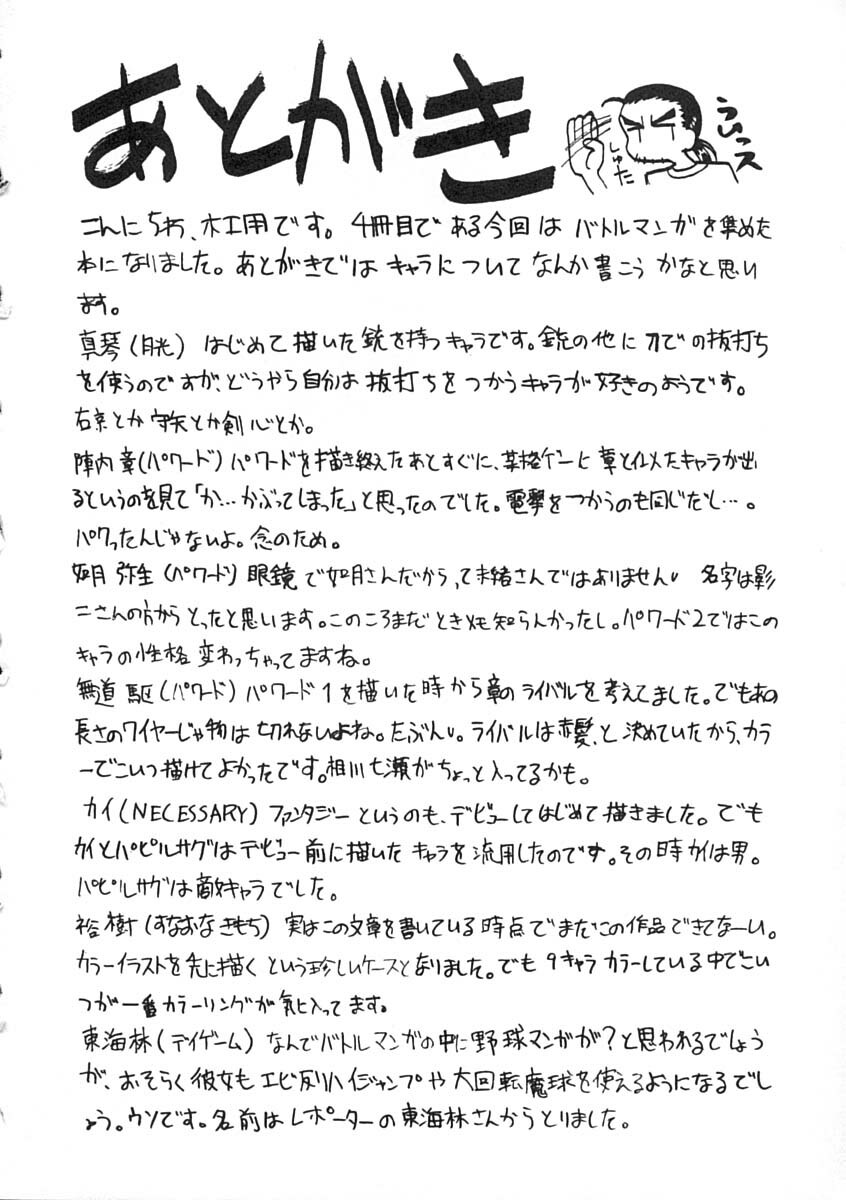 あとがき
ういっス
しゅた
こんにちわ、木工用です。4冊目である今回はバトルマンガを集めた
本になりました。あとがきではキャラについてなんか書こうかなと思い
ます。
真琴(月光) はじめて描いた銃を持つキャラです。銃の他に刀での抜打ち
を使うのですが、どうやら自分は抜打ちをつかうキャラが好きのようです。
右京とか守矢とか剣心とか。
陣内章(パワード) パワードを描き終えたあとすぐに、某格ゲーに章と似たキャラが出
るというのを見て「か…かぶってしまった」と思ったのでした。電撃をつかうのも同じだし…。
パクったんじゃないよ。念のため。
如月弥生(パワード) 眼鏡で如月さんだからって未緒さんではありません。名字は影
二さんの方からとったと思います。このころまだときメモ知らんかったし。パワード2ではこの
キャラの性格変わっちゃってますね。
無道駆(パワード) パワード1を描いた時から章のライバルを考えてました。でもあの
長さのワイヤーじゃ物は切れないよね。たぶん。ライバルは赤髪、と決めていたから、カラ
ーでこいつ描けてよかったです。相川七瀬がちょっと入ってるかも。
カイ(NECESSARY) ファンタジーというのも、デビューしてはじめて描きました。でも
カイとパピルサグはデビュー前に描いたキャラを流用したのです。その時カイは男。
パピルサグは敵キャラでした。
裕樹(すなおなきもち) 実はこの文章を書いている時点でまだこの作品できてなーい。
カラーイラストを先に描くという珍しいケースとなりました。でも9キャラカラーしている中でこい
つが一番カラーリングが気に入ってます。
東海林(デイゲーム) なんでバトルマンガの中に野球マンガが?と思われるでしょう
が、おそらく彼女もエビ反りハイジャンプや大回転魔球を使えるようになるでし
ょう。ウソです。名前はレポーターの東海林さんからとりました。